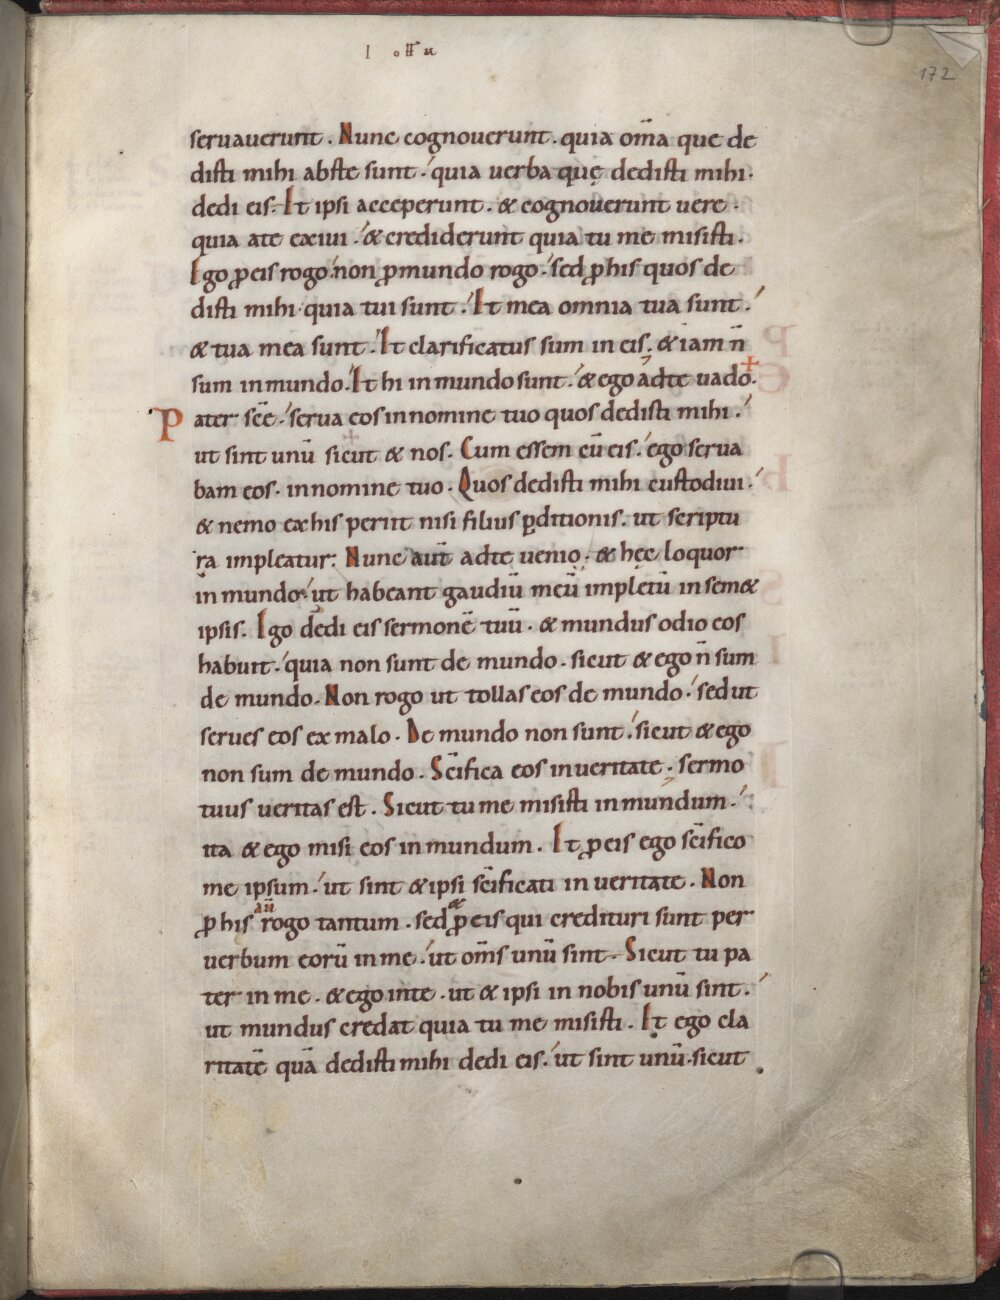 172
seruauerunt . Nunc cognouerunt . quia om̄a que de
disti mihi abste sunt . quia uerba quę dedisti mihi .
dedi eis . Et ipsi acceperunt . & cognouerunt uere .
quia ate exiui . & crediderunt quia tu me misisti .
Ego ꝓeis rogo . non ꝓmundo rogo . sed ꝓhis quos de
disti mihi . quia tui sunt . Et mea omnia tua sunt .
& tua mea sunt . Et clarificatus sum in eis . & iam n̄
sum inmundo . Et hi inmundo sunt . & ego adte uado .
Pater scē . serua eos innomine tuo quos dedisti mihi .
ut sint unū sicut & nos . Cum essem cū eis . ego serua
bam eos . innomine tuo . Quos dedisti mihi custodiui .
& nemo exhis periit nisi filius ꝑditionis . ut scriptu
ra impleatur . Nunc aut̄ adte uenio . & hęc loquor
inmundo . ut habeant gaudiū meū impletū insem&
ipsis . Ego dedi eis sermonē tuū . & mundus odio eos
habuit . quia non sunt de mundo . sicut & ego n̄ sum
de mundo . Non rogo ut tollas eos de mundo . sed ut
serues eos exmalo . De mundo non sunt . sicut & ego
non sum de mundo . Sc̄ifica eos inueritate . sermo
tuus ueritas est . Sicut tu me misisti inmundum .
ita & ego misi eos inmundum . Et ꝓeis ego sc̄ifico
me ipsum . ut sint & ipsi sc̄ificati in ueritate . Non
ꝓhis aū rogo tantum . sed & ꝓ eis qui credituri sunt per
uerbum eorū inme . ut om̄s unū sint . Sicut tu pa
ter in me . & ego inte . ut & ipsi in nobis unū sint .
ut mundus credat quia tu me misisti . Et ego cla
ritatē quā dedisti mihi dedi eis . ut sint unū . sicut